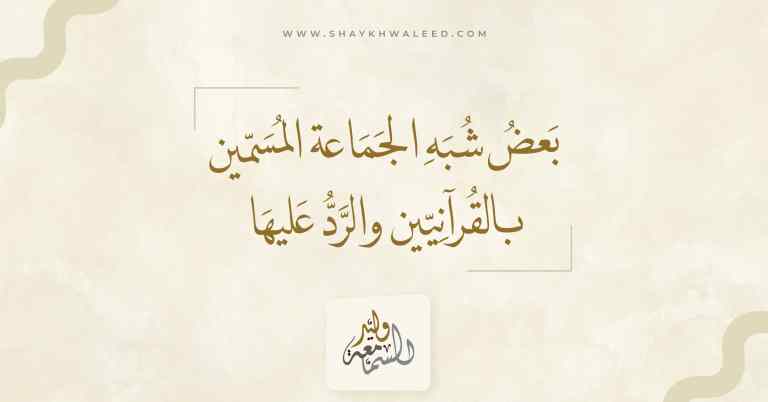 WWW.SHAYKHWALEED.COM
بَعضُ شُبَهِ الجَمَاعة المُسَمّين
بالقُرآنِيّين والرَّدُّ عَليهَا
وليد
السمامعة